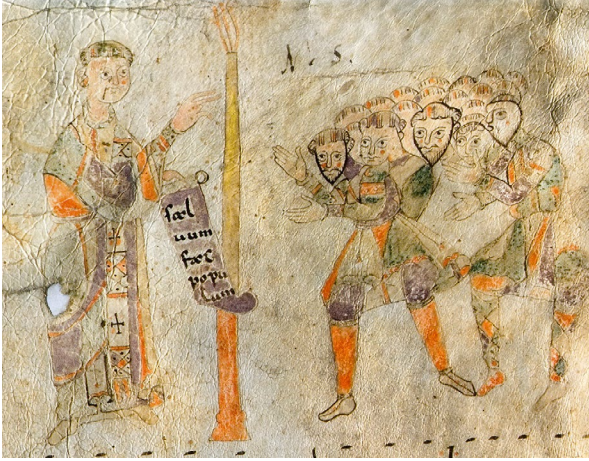 sal
uum
fac
popu
lum